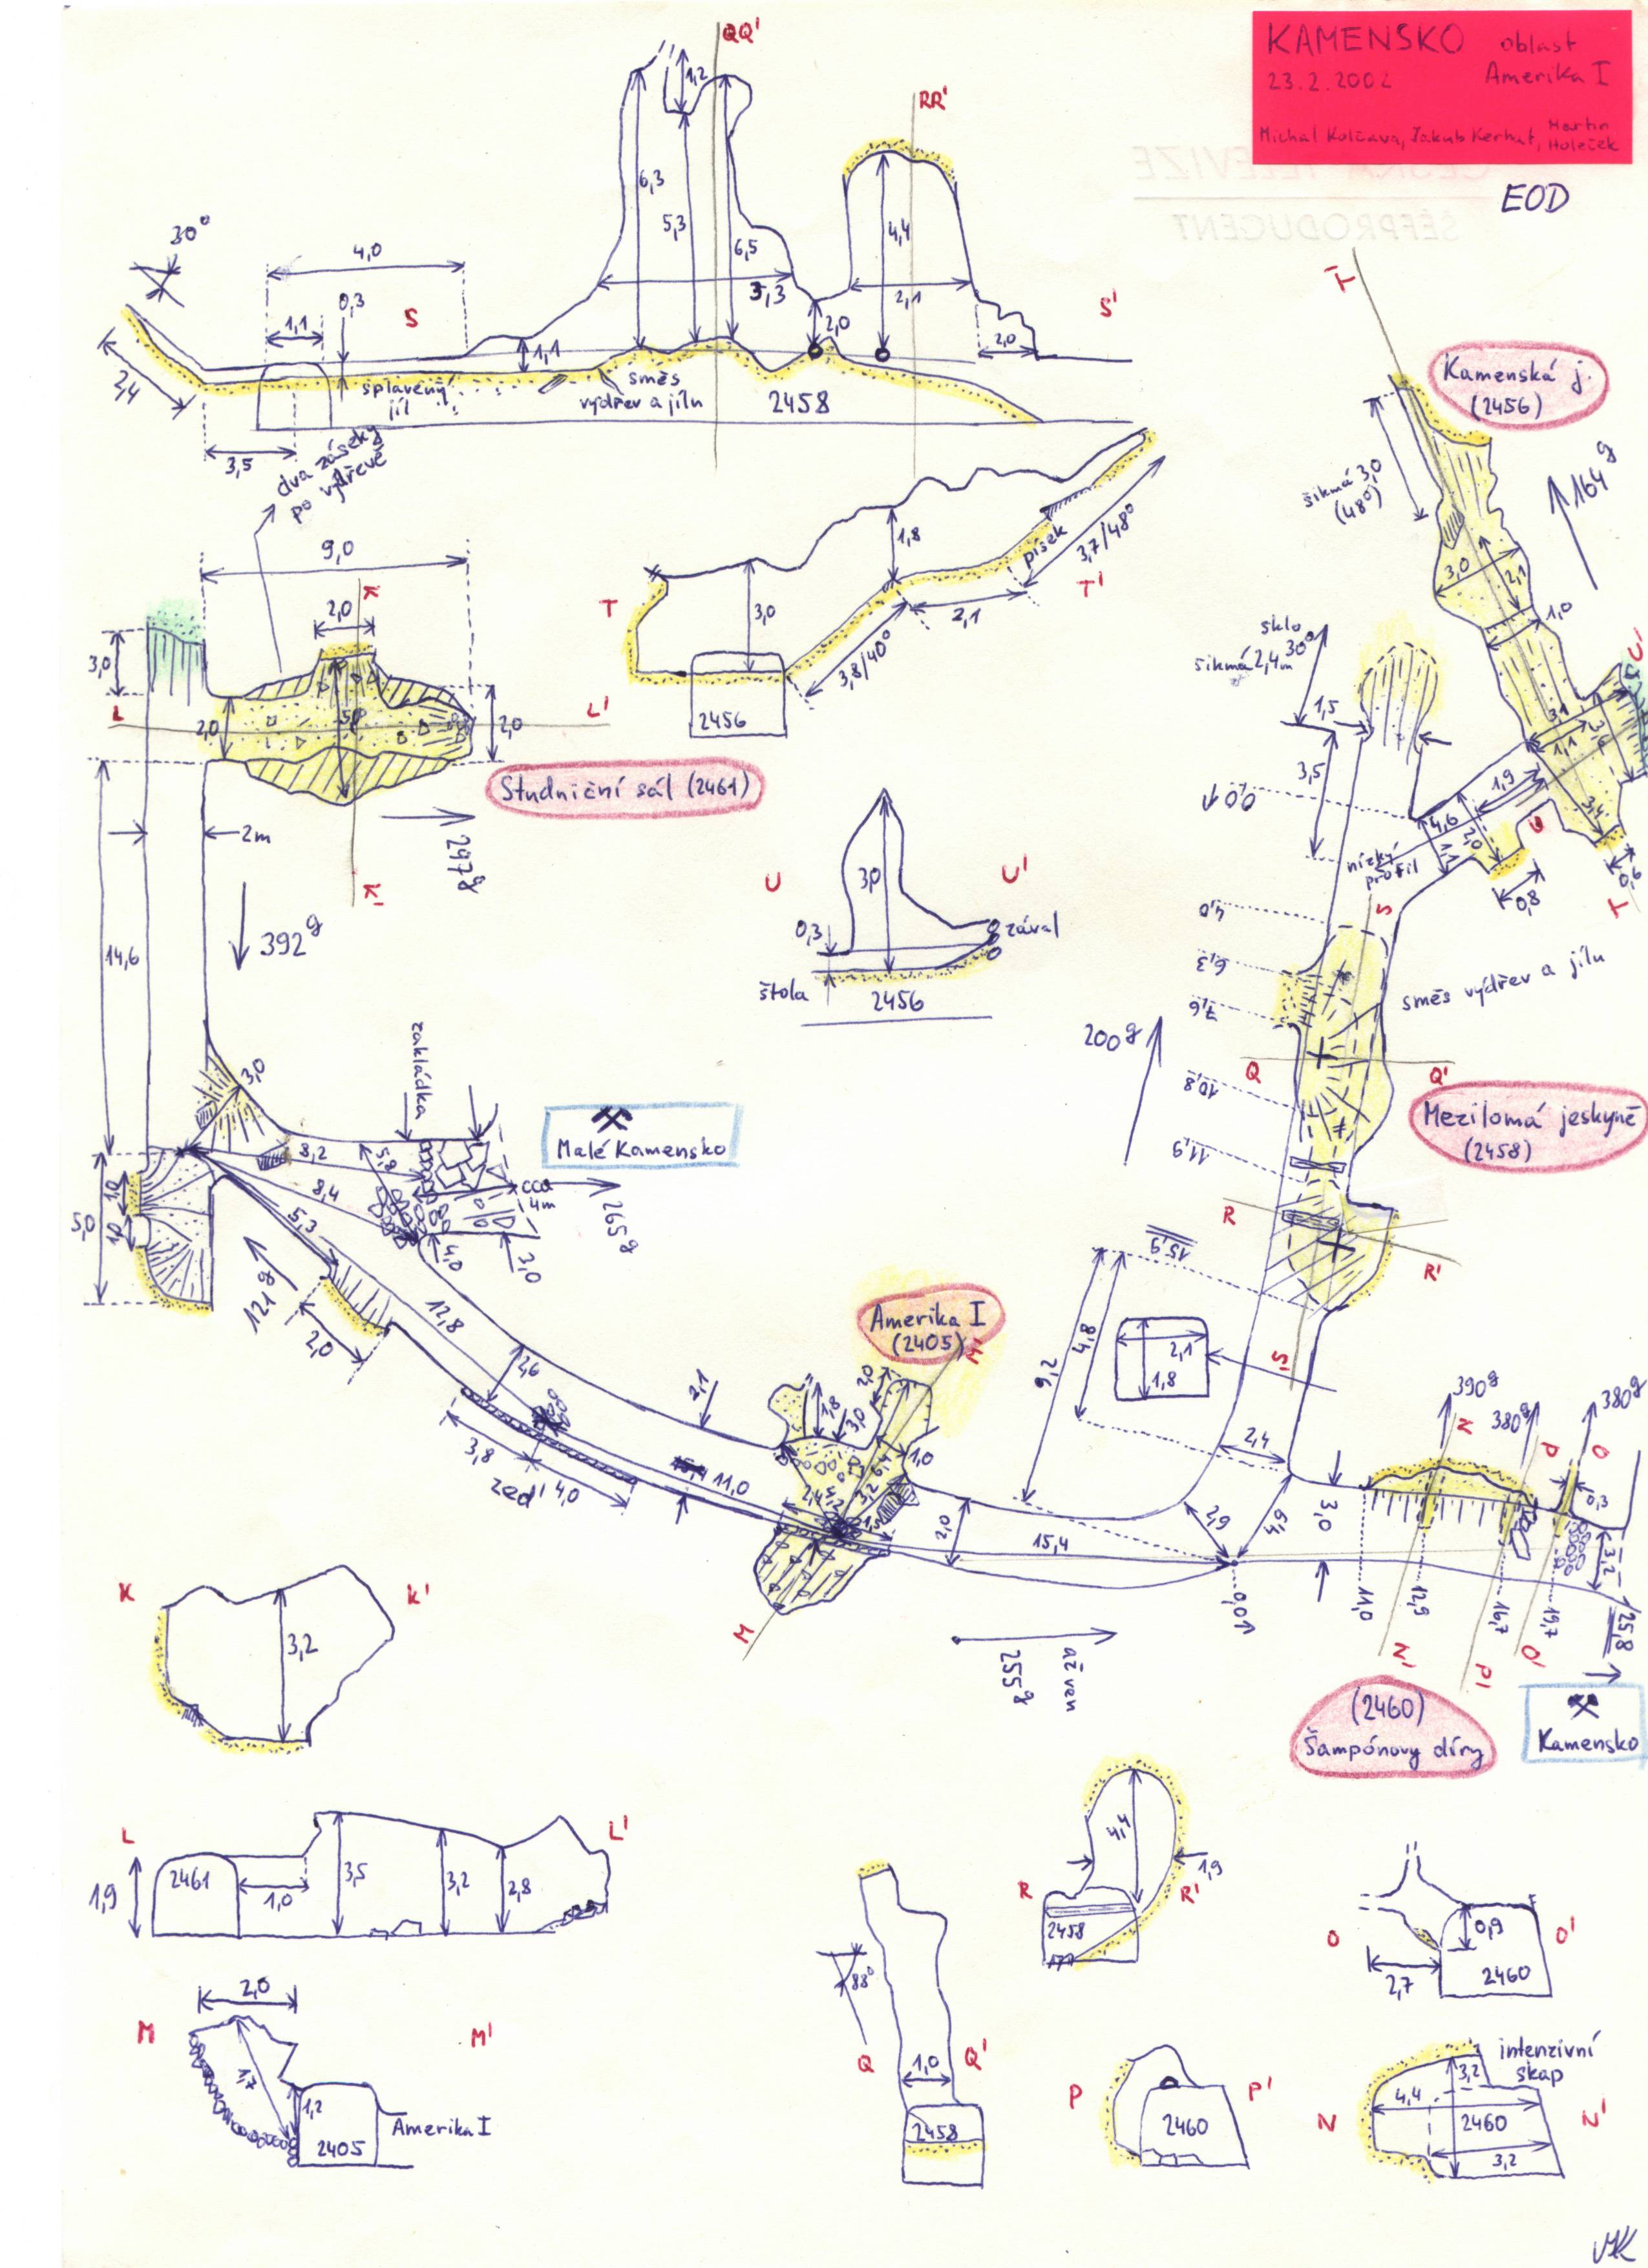 KAMENSKO oblast
23.2.2002 Amerika I
Michal Kolčava, Jakub Kerhat, Martin
Holeček
EOD
ČESKÁ TELEVIZE
ŠÉFPRODUCENT
QQ'
RR'
1,2
6,3
5,3
6,5
4,4
5,3
2,1
2,0
2,0
30°
4,0
0,3
1,1
S
S'
1,1
2,4
splavený
jíl
směs
výdřev a jílu
2458
3,5
dva záseky
po výdřevě
9,0
K'
2,0
3,0
L
L'
2,0
5,0
2,0
Studniční sál (2461)
2m
297g
K
392g
14,6
T
T'
3,0
1,8
písek
3,7/48°
2,1
3,8/40°
2456
U
U'
3,0
0,3
zával
štola
2456
T'
Kamenská j.
(2456)
šikmá 3,0
(48°)
164g
3,0
2,1
1,0
U'
sklo
30°
šikmá 2,4m
1,5
3,5
0,0
3,1
1,1
1,9
4,6
2,0
1,1
U
3,4
nízký
profil
0,8
0,6
T
4,0
S
6,3
7,6
směs výdřev a jílu
200g
Q
Q'
10,8
Mezilomá jeskyně
(2458)
11,9
R
R'
15,9
3,0
zakládka
Malé Kamensko
8,2
5,8
8,4
cca
4m
265g
5,3
4,0
3,0
1,0
5,0
1,0
121g
2,0
12,8
2,6
Amerika I
(2405)
M'
2,1
3,8
zeď 4,0
11,0
1,8
3,0
2,0
1,0
6,4
2,4
4,2
3,2
1,5
2,0
15,4
M
9,2
4,8
2,1
1,8
S'
2,4
2,9
4,9
3,0
390g
N
380g
P
380g
O
0,3
3,2
0,0
11,0
12,9
16,7
19,7
25,8
N'
P'
O'
255g
až ven
(2460)
Šampónovy díry
Kamensko
K
K'
3,2
L
L'
1,9
2461
1,0
3,5
3,2
2,8
M
M'
2,0
1,7
1,2
2405
Amerika I
88°
Q
Q'
1,0
2458
4,4
1,9
R
R'
2458
O
O'
0,9
2,7
2460
P
P'
2460
intenzivní
skap
N
N'
3,2
4,4
2460
3,2
MK